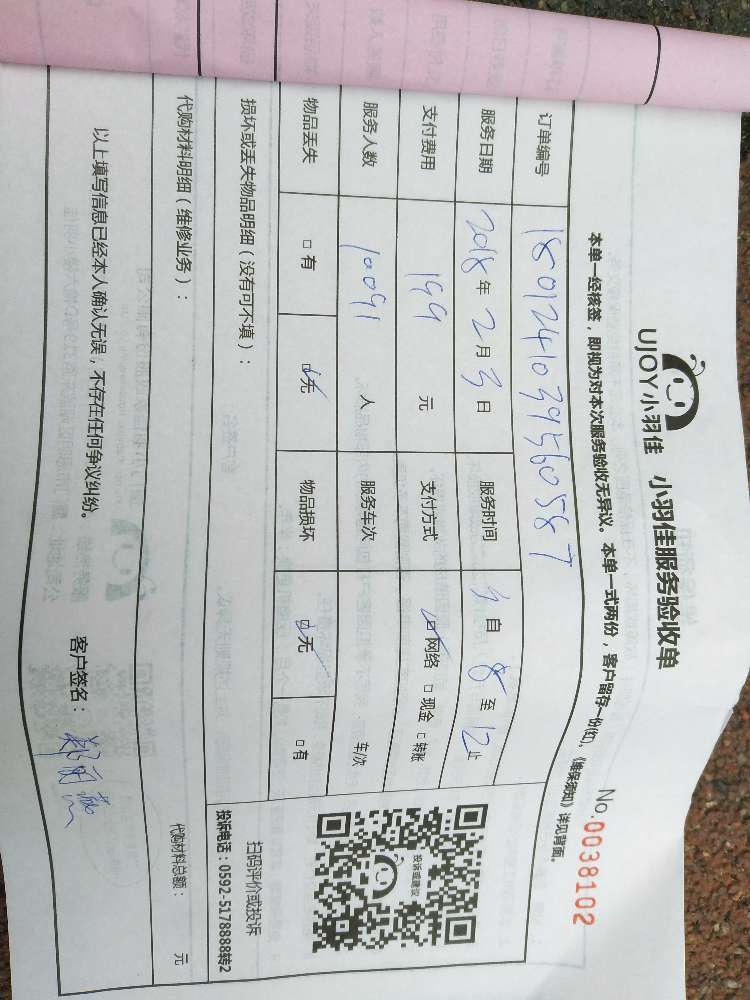 UJOY小羽佳 小羽佳服务验收单
No.0038102
本单一经核签，即视为对本次服务验收无异议。本单一式两份，客户留存一份(红)，《维保须知》详见背面。
订单编号 1801241039560587
服务日期 2018年2月3日 服务时间 自8至12止
支付费用 199元 支付方式 ☑网络 □现金 □转账
服务人数 10091人 服务车次 车/次
物品丢失 □有 ☑无 物品损坏 ☑无 □有
损坏或丢失物品明细（没有可不填）：
投诉或建议
扫码评价或投诉
投诉电话：0592-5178888转2
代购材料明细（维修业务）： 代购材料总额： 元
以上填写信息已经本人确认无误，不存在任何争议纠纷。 客户签名：